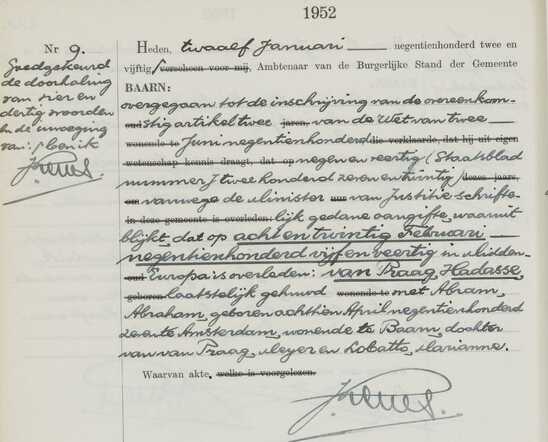 1952
Nr 9.
Goedgekeurd
de doorhaling
van vier en
dertig woorden
en de invoeging
van: ben ik
Heden, twaalf Januari negentienhonderd twee en
vijftig / verscheen voor mij, Ambtenaar van de Burgerlijke Stand der Gemeente
BAARN:
overgegaan tot de inschrijving van de overeenkom-
oud stig artikel twee jaren, van de Wet van twee
wonende te Juni negentienhonderd die verklaarde, dat hij uit eigen
wetenschap kennis draagt, dat op negen en veertig (Staatsblad
nummer J twee honderd zeven en twintig) dezes jaars,
om vanwege de Minister uur van Justitie schrifte-
in deze gemeente is overleden: lijk gedane aangifte, waaruit
blijkt, dat op acht en twintig Februari
negentienhonderd vijf en veertig in Midden-
oud Europa is overleden: van Praag, Hadasse,
geboren laatstelijk gehuwd wonende te met Abram,
Abraham, geboren achttien April negentienhonderd
zes te Amsterdam, wonende te Baarn, dochter
van van Praag, Meyer en Lobatto, Marianne.
Waarvan akte, welke is voorgelezen.